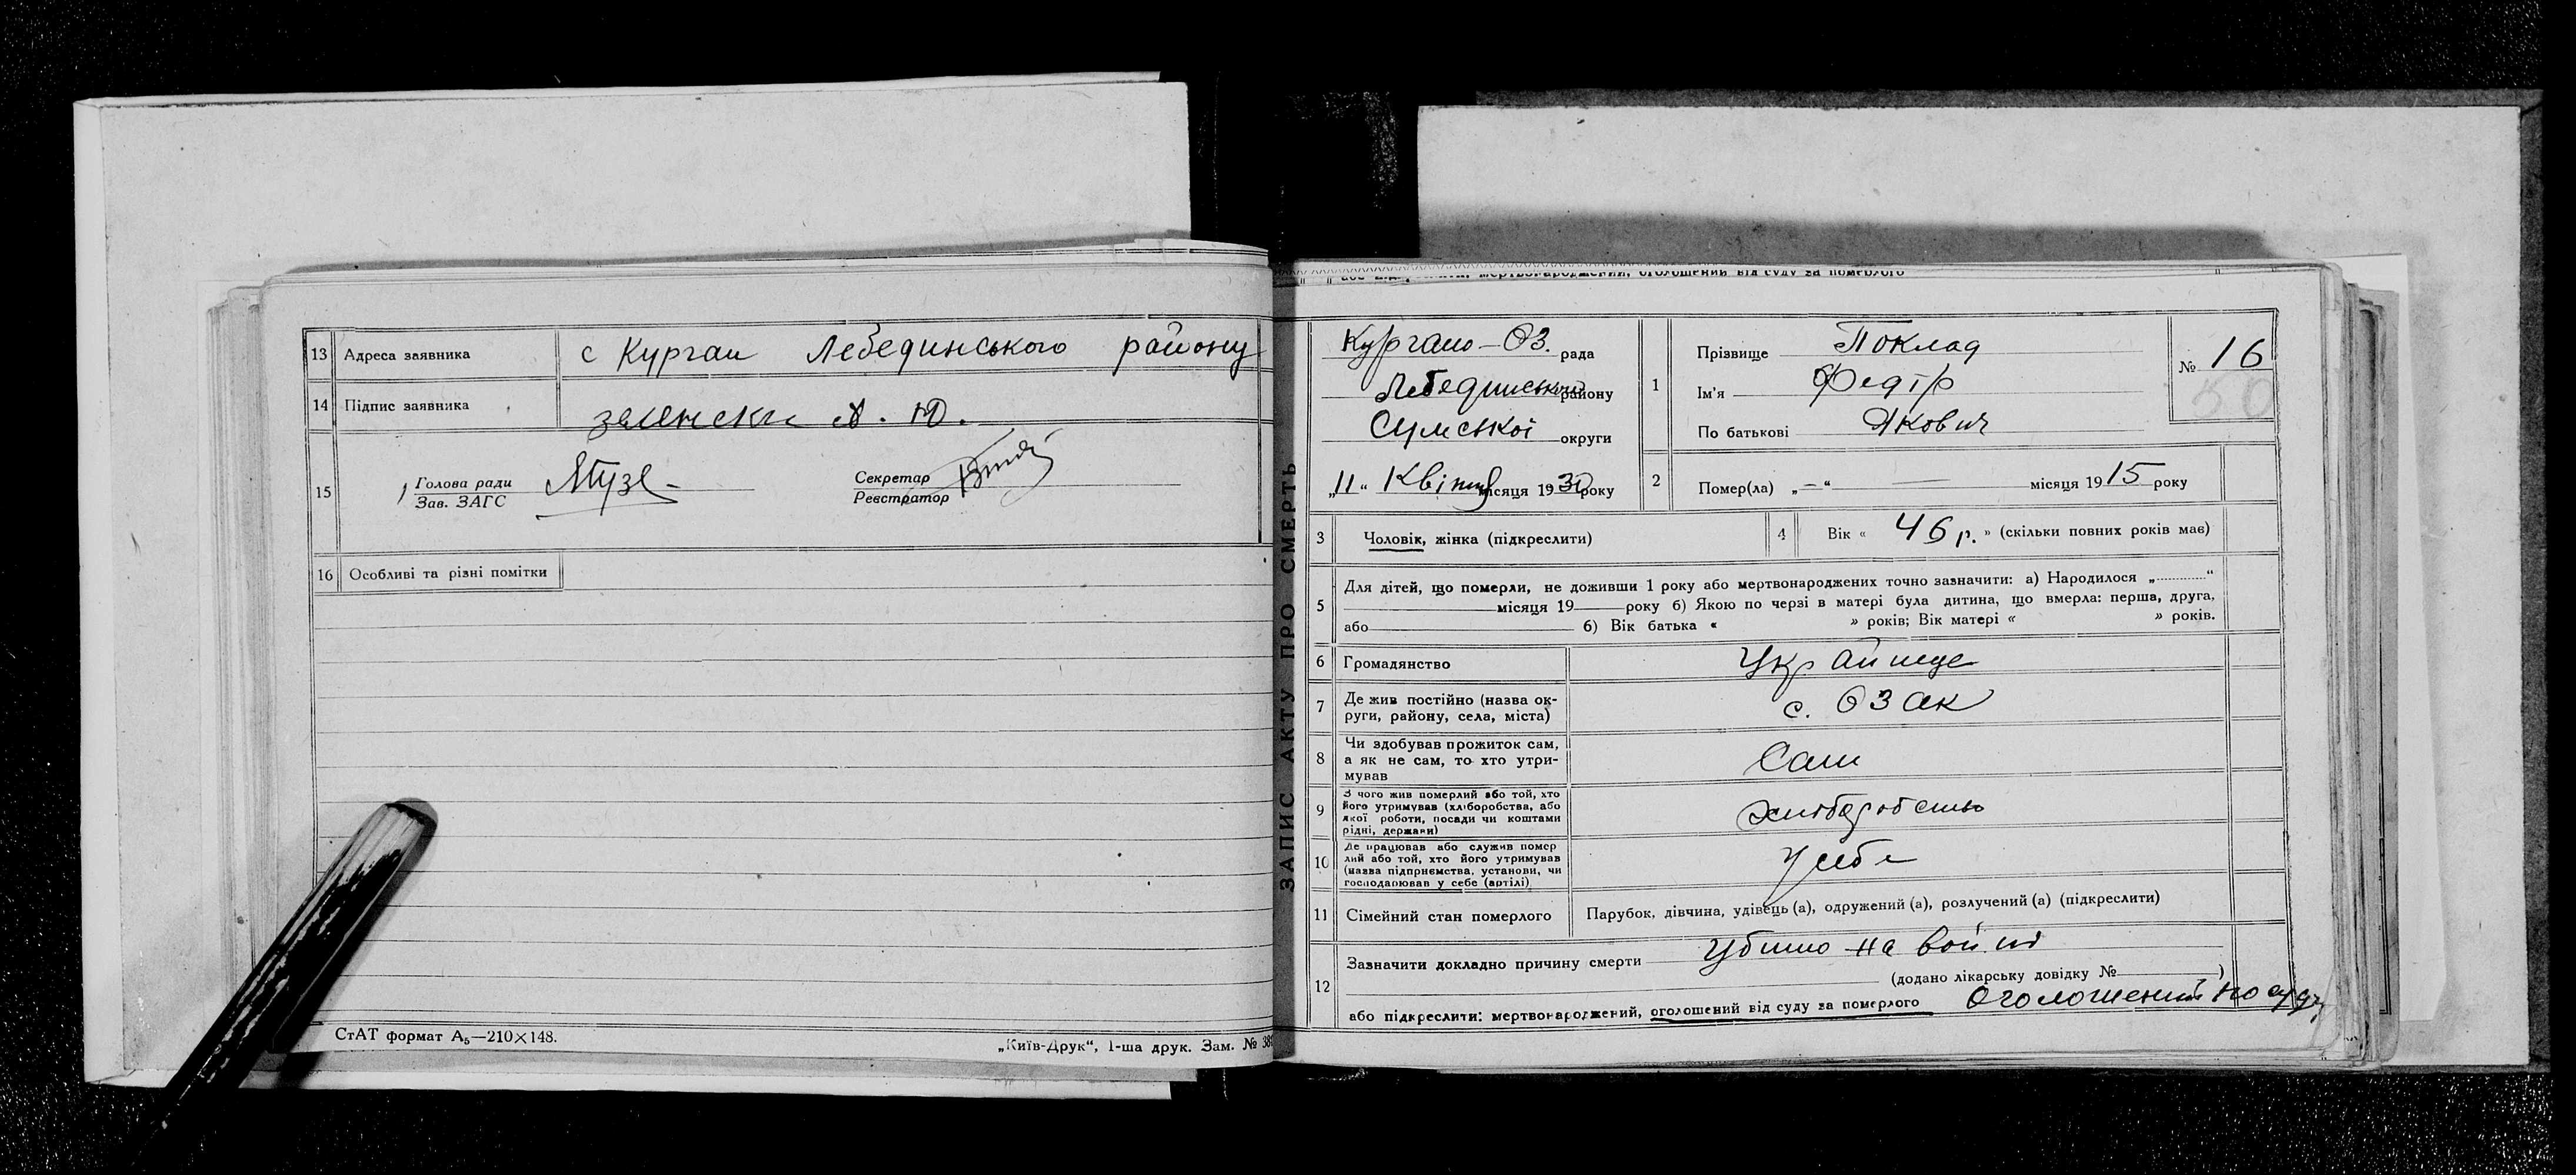 13 Адреса заявника с Курган Лебединського району
14 Підпис заявника зеленски А. Ю.
15 Голова ради
Зав. ЗАГС
Секретар
Реєстратор
16 Особливі та різні помітки
СтАТ формат А₅—210×148.
„Київ-Друк“, 1-ша друк. Зам. № 38
ЗАПИС АКТУ ПРО СМЕРТЬ
або мертвонароджений, оголошений від суду за померлого
Кургано-Оз. рада
Лебединський району
Сумської округи
„11“ Квітня місяця 1930 року
1 Прізвище Поклад
Ім'я Федір
По батькові Якович
№ 16
50
2 Помер(ла) „—“ — місяця 1915 року
3 Чоловік, жінка (підкреслити)
4 Вік « 46 р. » (скільки повних років має)
5 Для дітей, що померли, не доживши 1 року або мертвонароджених точно зазначити: а) Народилося „............“
місяця 19 року б) Якою по черзі в матері була дитина, що вмерла: перша, друга,
або б) Вік батька « » років; Вік матері « » років.
6 Громадянство Україніце
7 Де жив постійно (назва ок-
руги, району, села, міста) с. Озак
8 Чи здобував прожиток сам,
а як не сам, то хто утри-
мував Сам
9 З чого жив померлий або той, хто
його утримував (хліборобства, або
якої роботи, посади чи коштами
рідні, держави) хліборобство
10 Де працював або служив помер
лий або той, хто його утримував
(назва підприємства, установи, чи
господарював у себе (артілі) У себе
11 Сімейний стан померлого Парубок, дівчина, удівець (а), одружений (а), розлучений (а) (підкреслити)
12 Зазначити докладно причину смерти Убито на войні
(додано лікарську довідку № )
або підкреслити: мертвонароджений, оголошений від суду за померлого Оголошений по суду